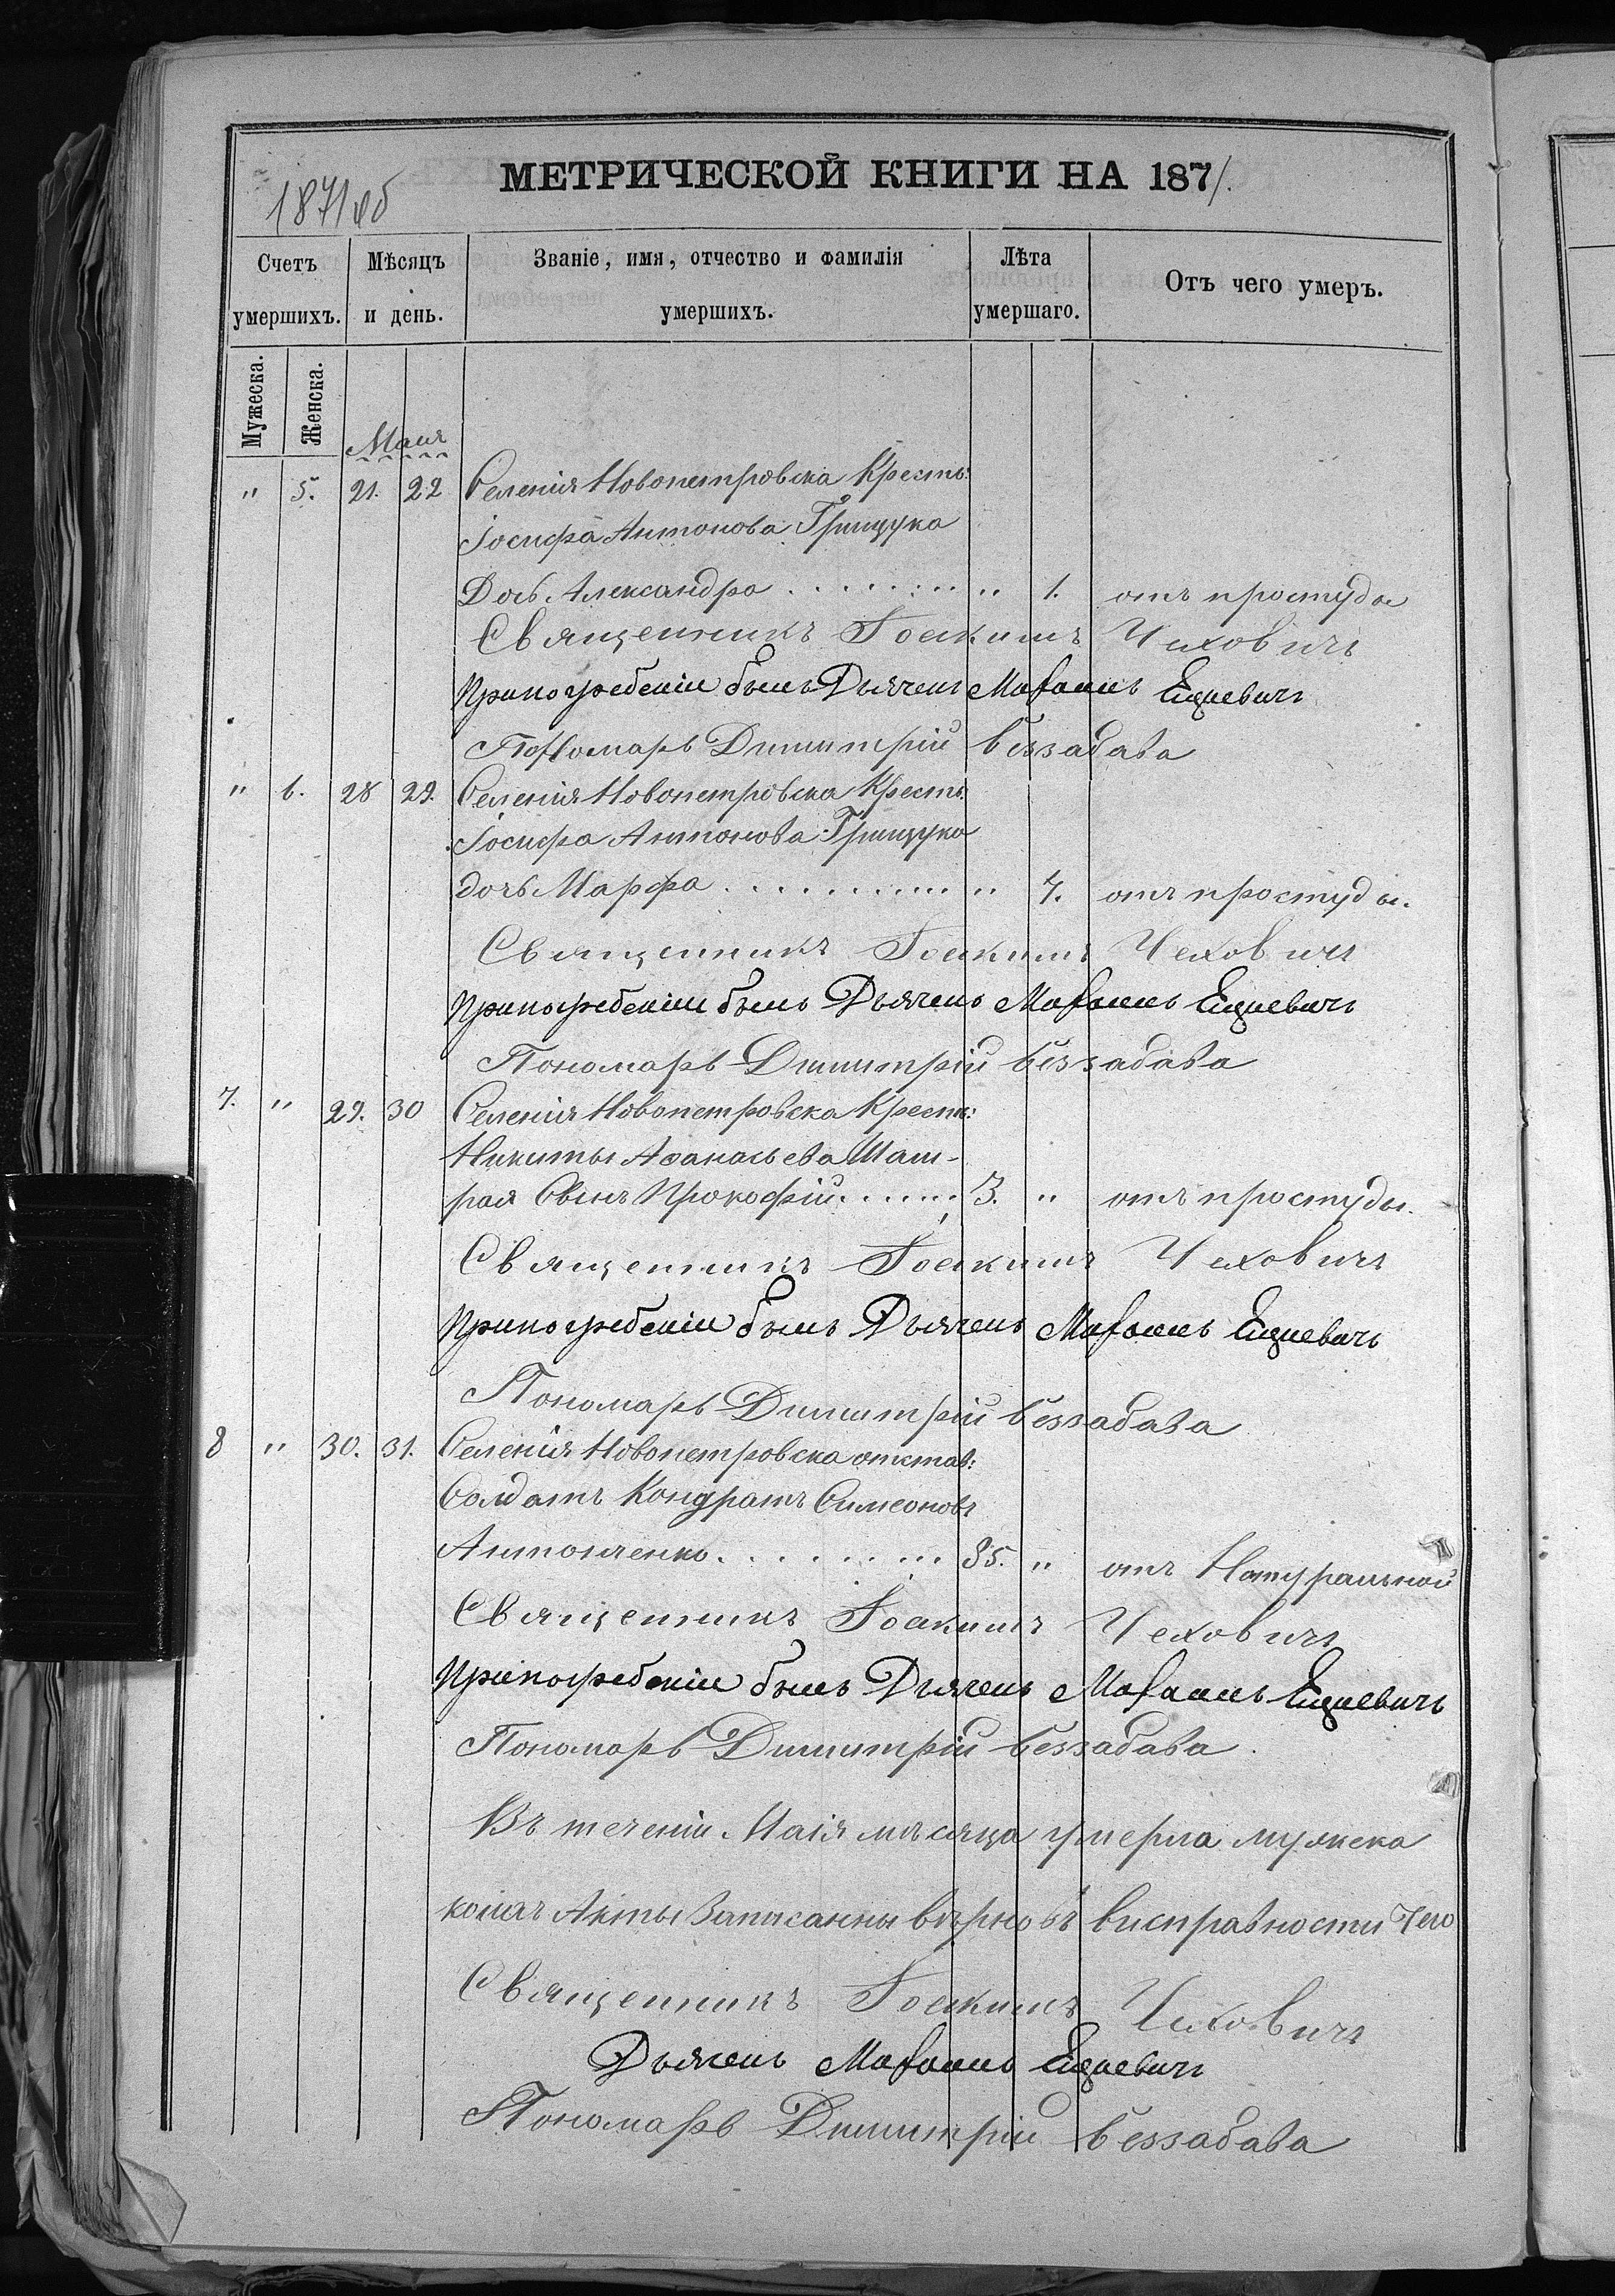 МЕТРИЧЕСКОЙ КНИГИ НА 1871.
1871
Счетъ умершихъ. Мѣсяцъ и день. Званіе, имя, отчество и фамилія умершихъ. Лѣта умершаго. Отъ чего умеръ.
Мужеска. Женска.
Маия
" 5. 21. 22 Селенія Новопетровска Крестъ:
Іосифа Антонова Грищука
Дочь Александра . . . . . . . . " 1. отъ простуды
Священникъ Іоакимъ Чеховичъ
При погребеніи былъ Дьячекъ
Пономарь Димитрій Беззабава
" 6. 28 29. Селенія Новопетровска Крестъ:
Іосифа Антонова Грищука
дочь Марфа . . . . . . . . . . . " 7. отъ простуды.
Священникъ Іоакимъ Чеховичъ
При погребеніи былъ Дьячекъ
Пономарь Димитрій Беззабава
7. " 29. 30 Селенія Новопетровска Крестъ:
Никиты Аѳанасьева Шаш-
рая Сынъ Прокофій . . . . . . . 3. " отъ простуды.
Священникъ Іоакимъ Чеховичъ
При погребеніи былъ Дьячекъ
Пономарь Димитрій Беззабава
8 " 30. 31. Селенія Новопетровска отстав:
Солдатъ Кондратъ Симеоновъ
Антонченко. . . . . . . . . . 85. " отъ Натуральной
Священникъ Іоакимъ Чеховичъ
При погребеніи былъ Дьячекъ
Пономарь Димитрій Беззабава.
Въ теченіи Маія мѣсяца умерла мужска
Акты Записанны вѣрно въ исправности чего
Священникъ Іоакимъ Чеховичъ
Дьячекъ
Пономарь Димитрій Беззабава